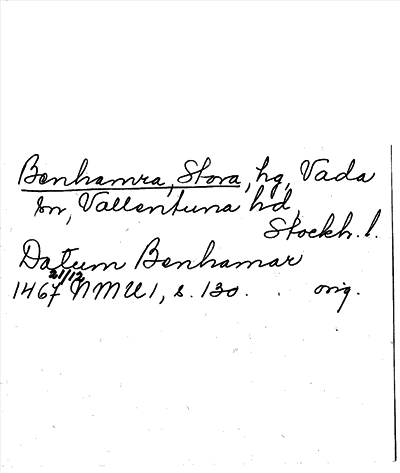 Benhamra, Stora, hg, Vada
sn, Vallentuna hd,
Stockh. l.
Datum Benhamar
21/12
1467 NMU 1, s. 130. . orig.